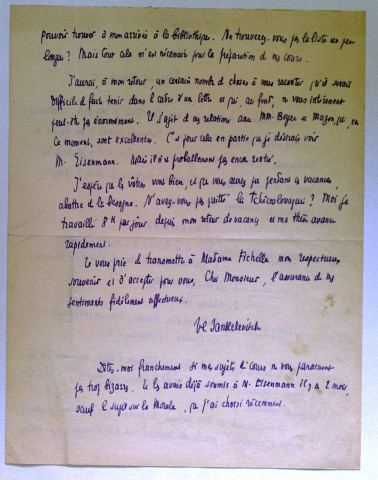 pouvoir trouver à mon arrivée à la bibliothèque. Ne trouverez-vous pas la liste un peu
longue ? Mais tout cela m'est nécessaire pour la préparation de mes cours.
J'aurai, à mon retour, un certain nombre de choses à vous raconter qu'il serait
difficile de faire tenir dans le cadre d'une lettre et qui, au fond, ne vous intéressent
peut-être pas énormément. Il s'agit de mes relations avec MM. Boyer et Mazon qui, en
ce moment, sont excellentes. C'est pour cela en partie que je désirais voir
M. Eisenmann. Mais il n'est probablement pas encore rentré.
J'espère que les vôtres vont bien, et que vous aurez pu pendant ces vacances,
abattre de la besogne. N'avez-vous pas quitté la Tchécoslovaquie ? Moi je
travaille 8 h par jour depuis mon retour de vacances et ma thèse avance
rapidement.
Je vous prie de transmettre à Madame Fichelle mon respectueux
souvenir et d'accepter pour vous, Cher Monsieur, l'assurance de mes
sentiments fidèlement affectueux.
Vl Jankélévitch
Dites-moi franchement si mes sujets de cours ne vous paraissent
pas trop bizarres. Je les avais déjà soumis à M. Eisenmann il y a 2 mois,
sauf le sujet sur la Morale, que j'ai choisi récemment.